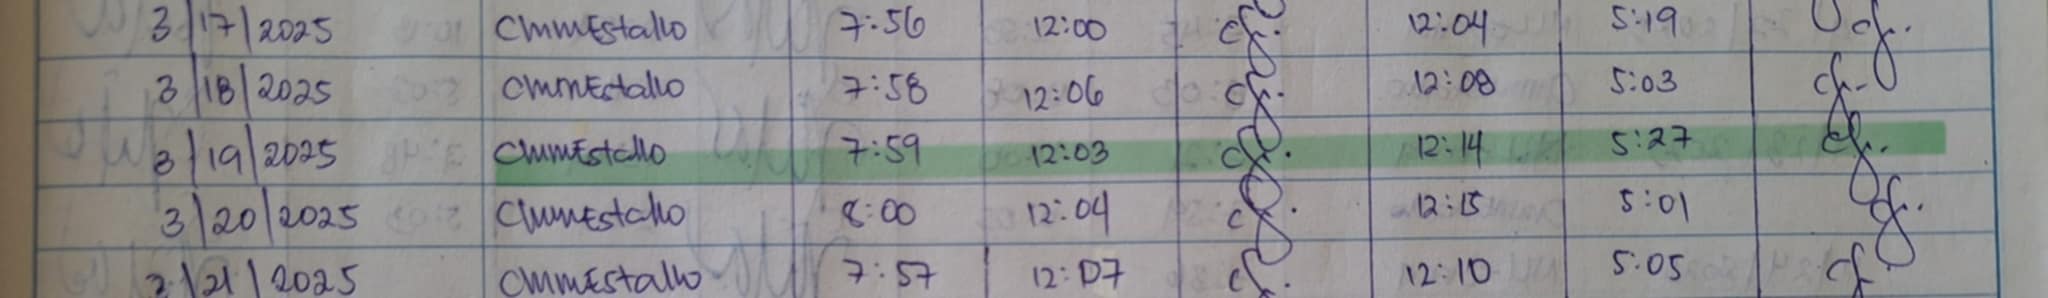 3/17/2025 CMMEstallo 7:56 12:00 cf. 12:04 5:19 cf.
3/18/2025 CMMEstallo 7:58 12:06 cf. 12:08 5:03 cf.
3/19/2025 CMMEstallo 7:59 12:03 cf. 12:14 5:27 cf.
3/20/2025 CMMEstallo 8:00 12:04 cf. 12:15 5:01 cf.
3/21/2025 CMMEstallo 7:57 12:07 cf. 12:10 5:05 cf